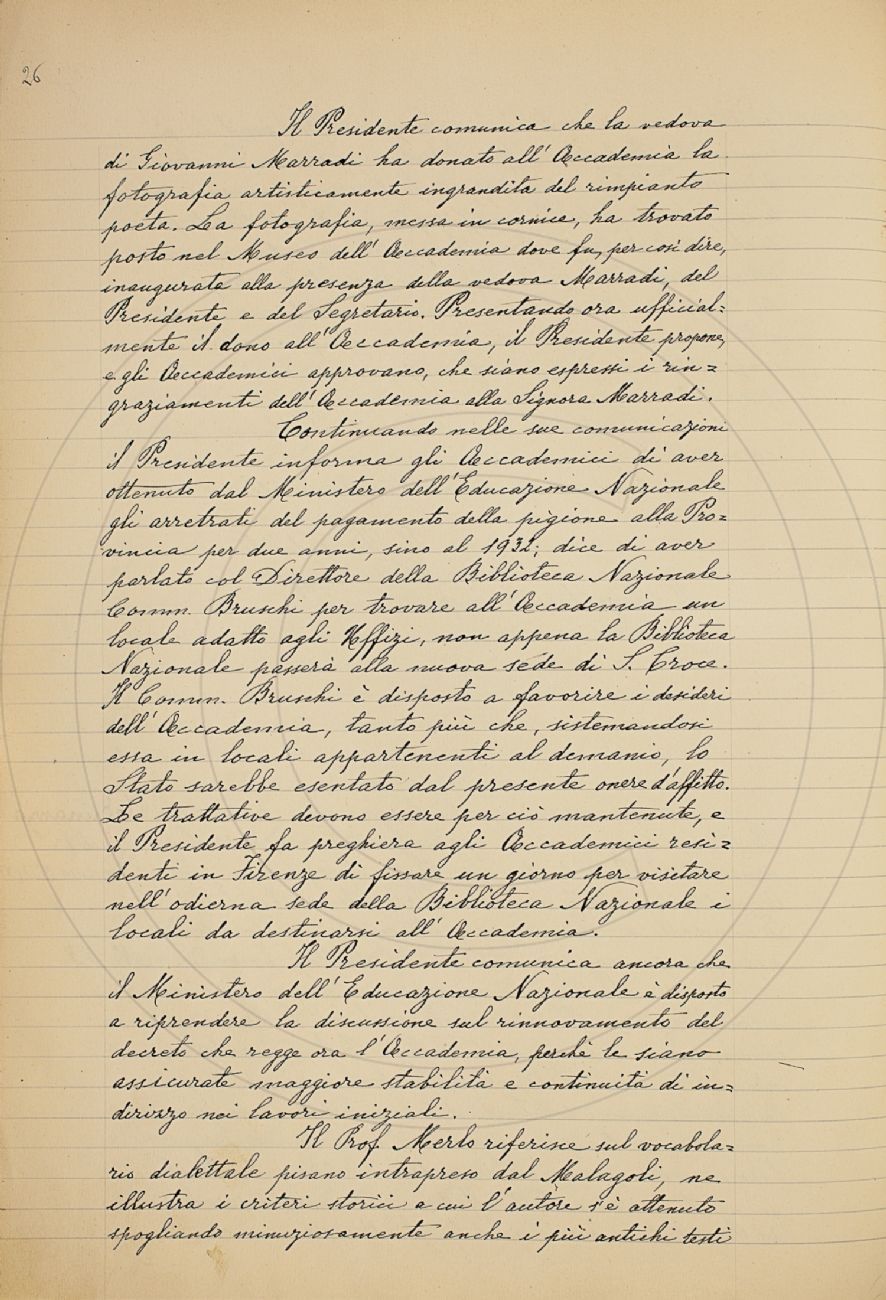 26
Il Presidente comunica che la vedova
di Giovanni Marradi ha donato all'Accademia la
fotografia artisticamente ingrandita del rimpianto
poeta. La fotografia, messa in cornice, ha trovato
posto nel Museo dell'Accademia dove fu, per così dire,
inaugurata alla presenza della vedova Marradi, del
Presidente e del Segretario. Presentando ora ufficial=
mente il dono all'Accademia, il Presidente propone,
e gli Accademici approvano, che siano espressi i rin=
graziamenti dell'Accademia alla Signora Marradi.
Continuando nelle sue comunicazioni
il Presidente informa gli Accademici di aver
ottenuto dal Ministero dell'Educazione Nazionale
gli arretrati del pagamento della pigione alla Pro=
vincia per due anni, sino al 1932; dice di aver
parlato col Direttore della Biblioteca Nazionale
Comm. Bruschi per trovare all'Accademia un
locale adatto agli Uffizi, non appena la Biblioteca
Nazionale passerà alla nuova sede di S. Croce.
Il Comm. Bruschi è disposto a favorire i desideri
dell'Accademia, tanto più che, sistemandosi
essa in locali appartenenti al demanio, lo
Stato sarebbe esentato dal presente onere d'affitto.
Le trattative devono essere per ciò mantenute, e
il Presidente fa preghiera agli Accademici resi=
denti in Firenze di fissare un giorno per visitare
nell'odierna sede della Biblioteca Nazionale i
locali da destinarsi all'Accademia.
Il Presidente comunica ancora che
il Ministero dell'Educazione Nazionale è disposto
a riprendere la discussione sul rinnovamento del
decreto che regge ora l'Accademia, perchè le siano
assicurate maggiore stabilità e continuità di in=
dirizzo nei lavori iniziali.
Il Prof. Merlo riferisce sul vocabola=
rio dialettale pisano intrapreso dal Malagoli, ne
illustra i criteri storici a cui l'autore s'è attenuto
spogliando minuziosamente anche i più antichi testi